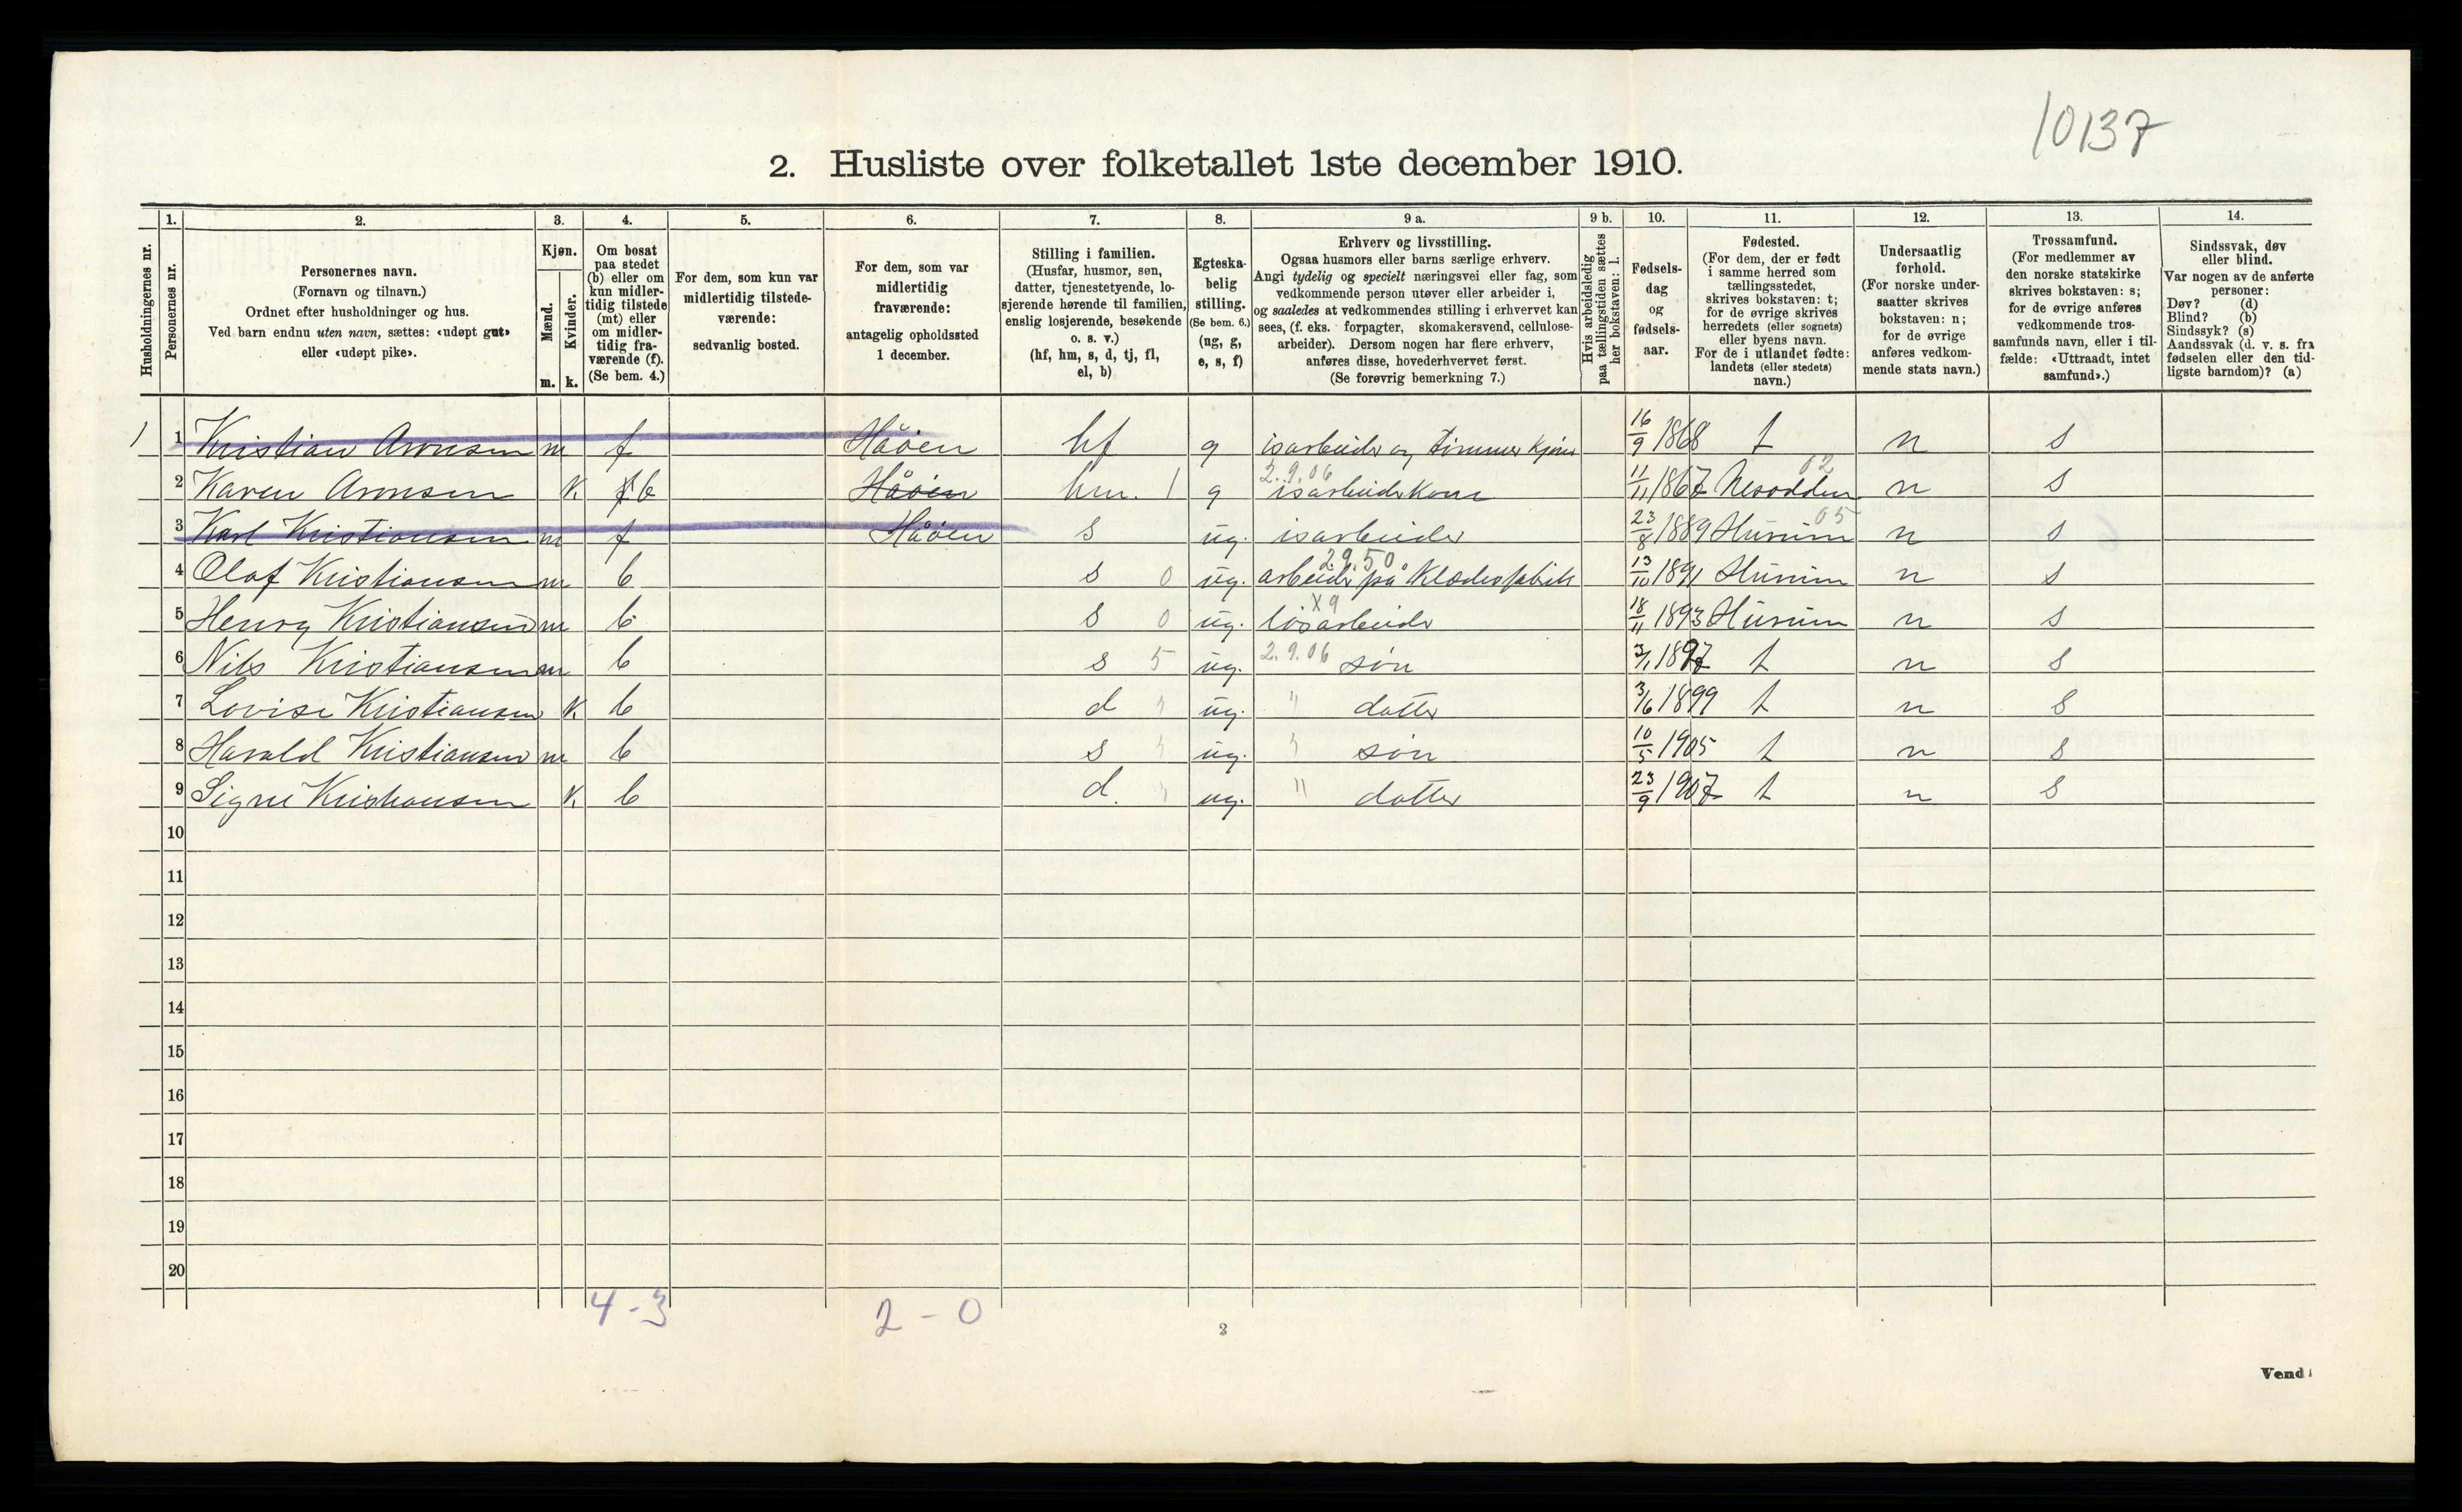 10137
2. Husliste over folketallet 1ste december 1910.
Husholdningernes nr.
1. Personernes nr.
2. Personernes navn. (Fornavn og tilnavn.) Ordnet efter husholdninger og hus. Ved barn endnu uten navn, sættes: «udøpt gut» eller «udøpt pike».
3. Kjøn. Mænd. m. Kvinder. k.
4. Om bosat paa stedet (b) eller om kun midlertidig tilstede (mt) eller om midlertidig fraværende (f). (Se bem. 4.)
5. For dem, som kun var midlertidig tilstedeværende: sedvanlig bosted.
6. For dem, som var midlertidig fraværende: antagelig opholdssted 1 december.
7. Stilling i familien. (Husfar, husmor, søn, datter, tjenestetyende, losjerende hørende til familien, enslig losjerende, besøkende o. s. v.) (hf, hm, s, d, tj, fl, el, b)
8. Egteskabelig stilling. (Se bem. 6.) (ug, g, e, s, f)
9 a. Erhverv og livsstilling. Ogsaa husmors eller barns særlige erhverv. Angi tydelig og specielt næringsvei eller fag, som vedkommende person utøver eller arbeider i, og saaledes at vedkommendes stilling i erhvervet kan sees, (f. eks. forpagter, skomakersvend, cellulosearbeider). Dersom nogen har flere erhverv, anføres disse, hovederhvervet først. (Se forøvrig bemerkning 7.)
9 b. Hvis arbeidsledig paa tællingstiden sættes her bokstaven: l.
10. Fødselsdag og fødselsaar.
11. Fødested. (For dem, der er født i samme herred som tællingsstedet, skrives bokstaven: t; for de øvrige skrives herredets (eller sognets) eller byens navn. For de i utlandet fødte: landets (eller stedets) navn.)
12. Undersaatlig forhold. (For norske undersaatter skrives bokstaven: n; for de øvrige anføres vedkommende stats navn.)
13. Trossamfund. (For medlemmer av den norske statskirke skrives bokstaven: s; for de øvrige anføres vedkommende trossamfunds navn, eller i tilfælde: «Uttraadt, intet samfund».)
14. Sindssvak, døv eller blind. Var nogen av de anførte personer: Døv? (d) Blind? (b) Sindssyk? (s) Aandssvak (d. v. s. fra fødselen eller den tidligste barndom)? (a)
1 1 Kristian Aronsen m f Håöen hf g isarbeider og tömmerkjörer 16/9 1868 t n s
2 Karen Aronsen k f b Håöen hm. 1 g 2.9.06 isarbeiderkone 11/11 1867 Nesodden 02 n s
3 Karl Kristiansen m f Håöen s ug. isarbeider 23/8 1889 Hurum 05 n s
4 Olaf Kristiansen m b s 0 ug. 29.50 arbeider på Klædesfabrik 13/10 1891 Hurum n s
5 Henry Kristiansen m b s 0 ug. x9 lösarbeider 18/11 1893 Hurum n s
6 Nils Kristiansen m b s 5 ug. 2.9.06 sön 3/1 1897 t n s
7 Lovise Kristiansen k b d " ug. " datter 3/6 1899 t n s
8 Harald Kristiansen m b s " ug. " sön 10/5 1905 t n s
9 Signe Kristiansen k b d. " ug. " datter 23/9 1907 t n s
10
11
12
13
14
15
16
17
18
19
20
4 - 3 2 - 0
2
Vend!